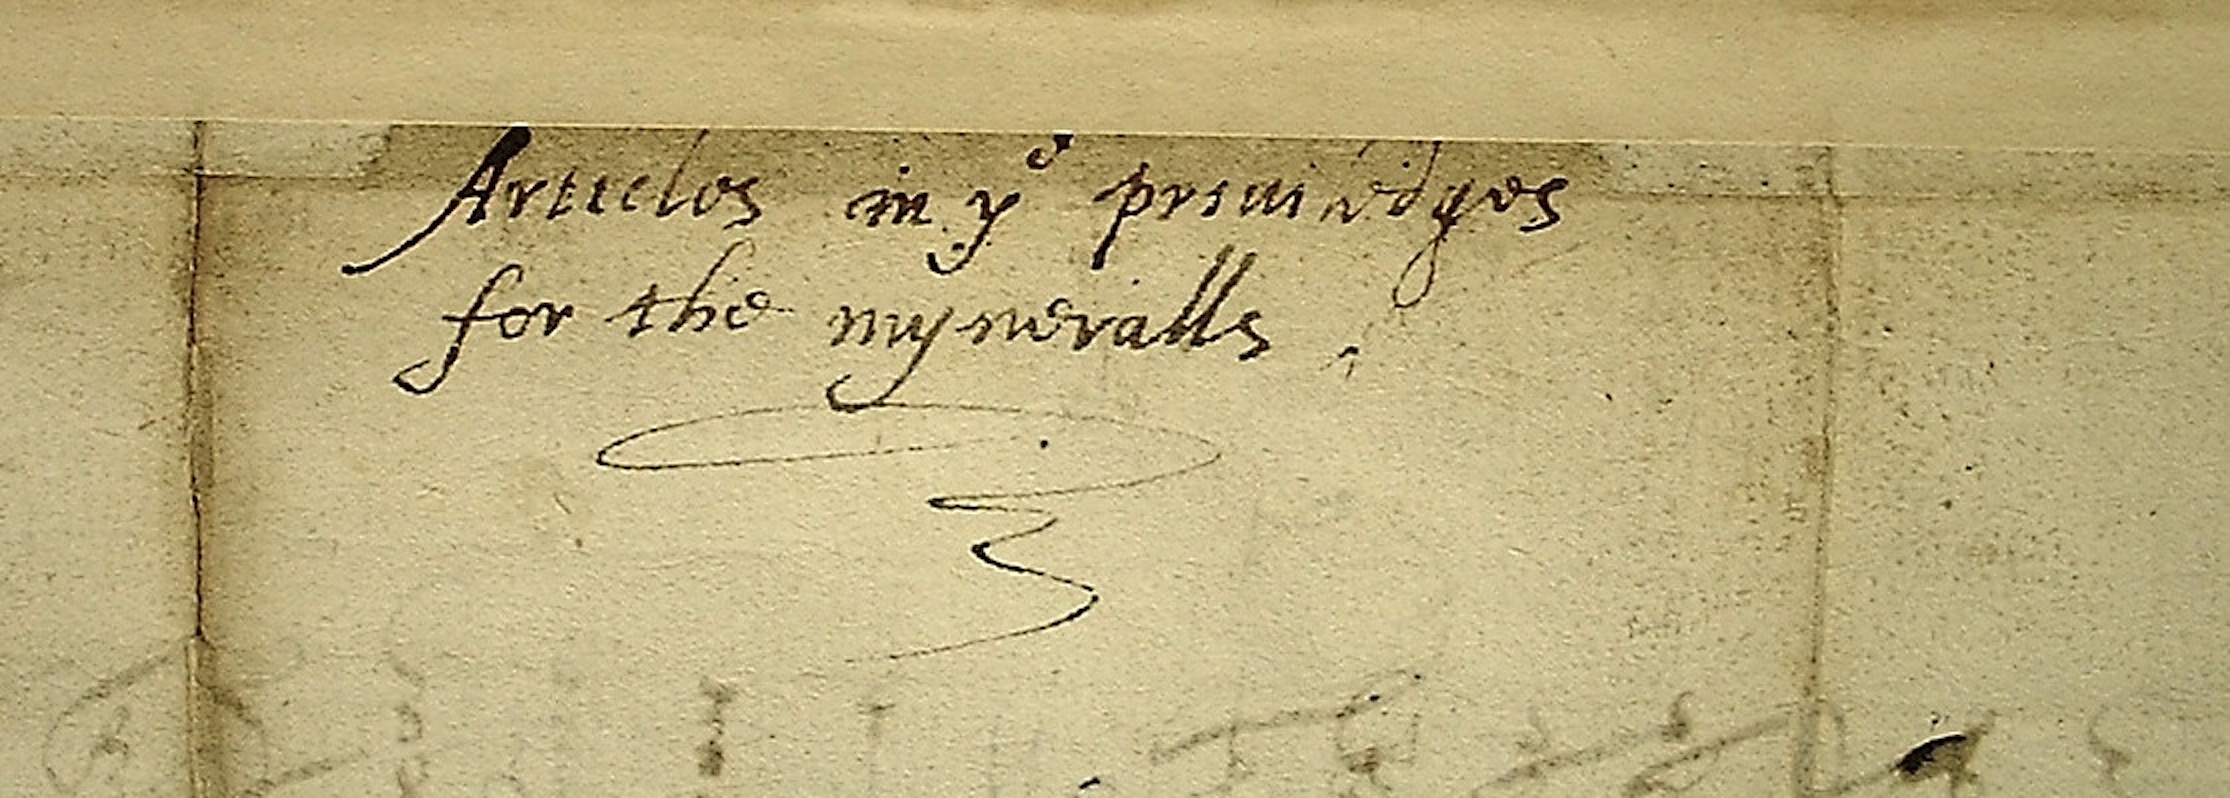 Articles in yᵉ priuiledges
for the myneralls